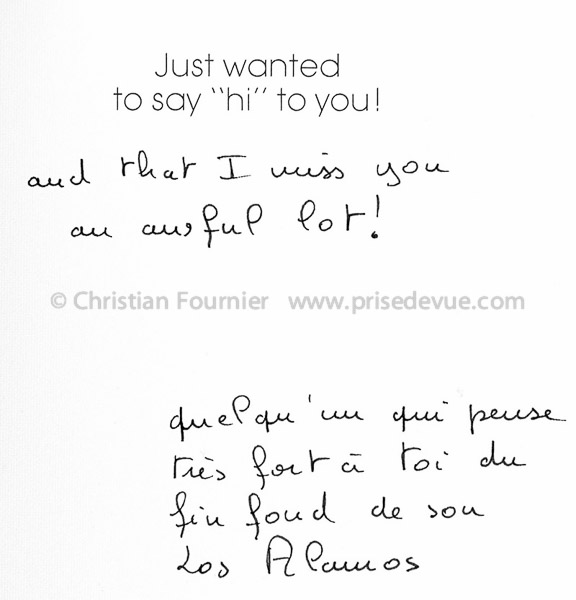 Just wanted
to say "hi" to you!
and that I miss you
an awful lot!
© Christian Fournier www.prisedevue.com
quelqu'un qui pense
très fort à toi du
fin fond de son
Los Alamos